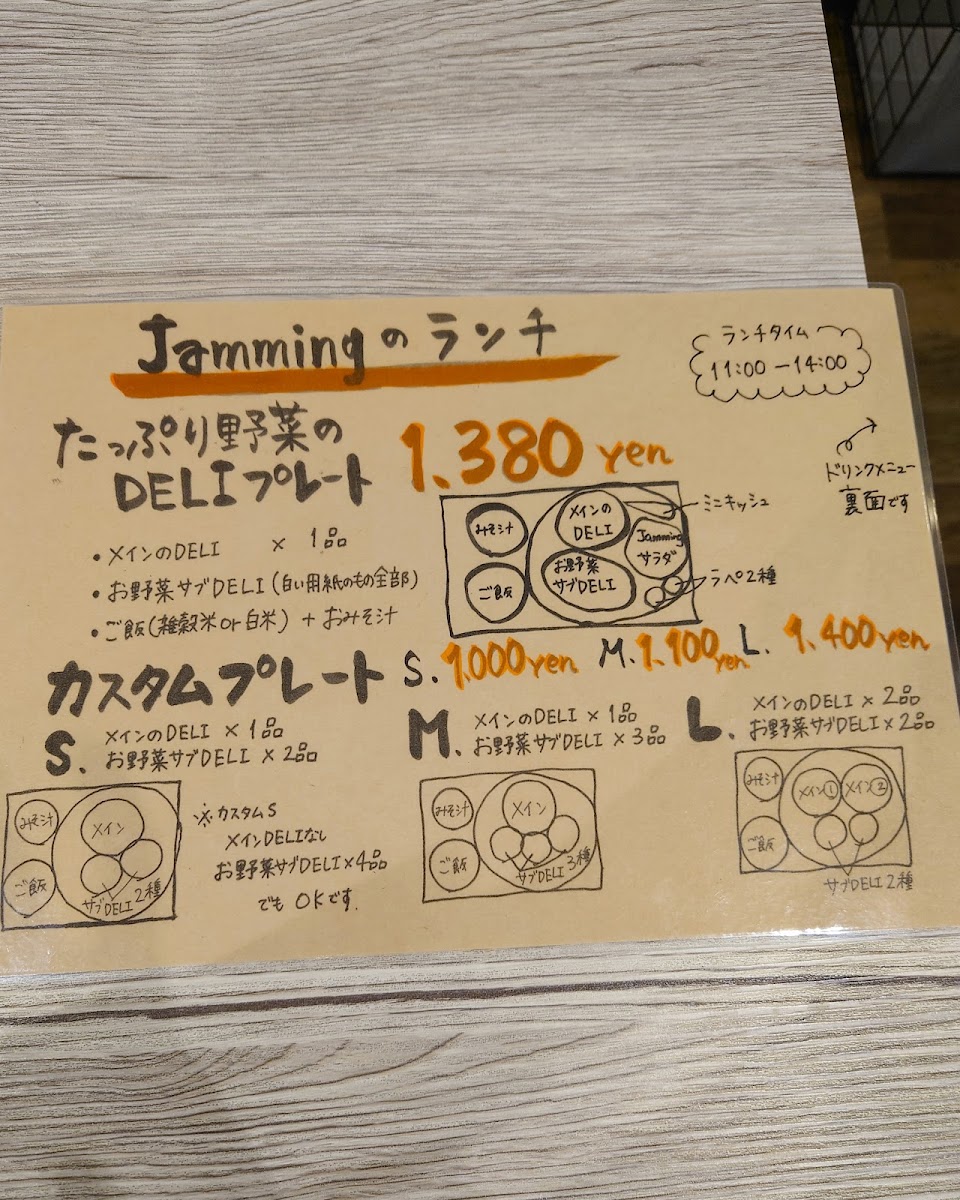 Jammingのランチ
ランチタイム
11:00 ー14:00
たっぷり野菜の
DELIプレート
1.380 yen
ドリンクメニュー
裏面です
・メインのDELI × 1品
・お野菜サブDELI (白い用紙のもの全部)
・ご飯(雑穀米or白米) + おみそ汁
みそ汁
ご飯
メインの
DELI
お野菜
サブDELI
Jamming
サラダ
ミニキッシュ
ラペ2種
カスタムプレート
S. 1.000yen
M. 1.100yen
L. 1.400yen
S.
メインのDELI × 1品
お野菜サブDELI × 2品
みそ汁
ご飯
メイン
サブDELI 2種
※カスタムS
メインDELIなし
お野菜サブDELI×4品
でも OKです.
M.
メインのDELI × 1品
お野菜サブDELI × 3品
みそ汁
ご飯
メイン
サブDELI 3種
L.
メインのDELI × 2品
お野菜サブDELI × 2品
みそ汁
ご飯
メイン①
メイン②
サブDELI 2種